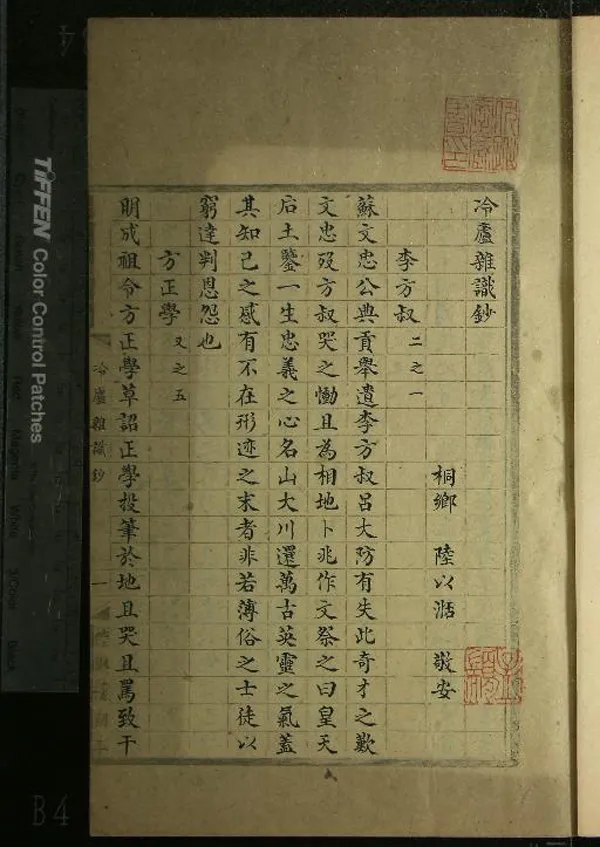 冷廬雜識鈔
桐鄉 陸以湉 敬安
李方叔 二之一
蘇文忠公典貢舉遺李方叔呂大防有失此奇才之歎
文忠歿方叔哭之慟且為相地卜兆作文祭之曰皇天
后土鑒一生忠義之心名山大川還萬古英靈之氣蓋
其知己之感有不在形迹之末者非若薄俗之士徒以
窮達判恩怨也
方正學 又之五
明成祖令方正學草詔正學投筆於地且哭且罵致干
冷廬雜識鈔 一
TIFFEN Color Control Patches
B4